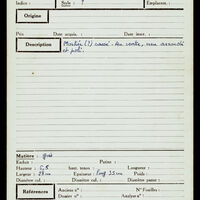 Indice : Série : ? Emplacem. :
Origine
Prix Date acquis. : Date inscr. :
Description Mortier (?) cassé. Au centre, creux arrondi
et poli.
Matière : grès
Exécut. : Patine :
Hauteur : 6,8 haut. tenon : Longueur :
Largeur : 28 cm Epaisseur : long. 35 cm
Diamètre col. : Diamètre panse :
Références Ancien n° : N° Fouilles :
Dossier n° : Analyse n° :